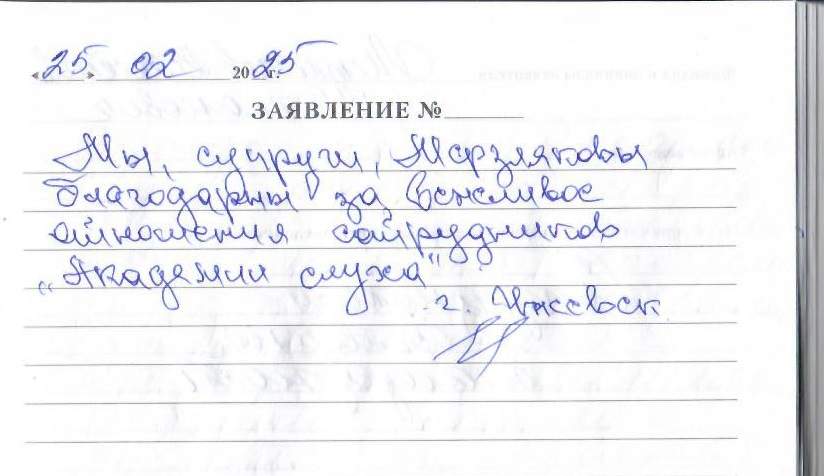 «25» 02 2025 г.
ЗАЯВЛЕНИЕ №
Мы, супруги, Мерзляковы
благодарны за вежливое
отношения сотрудников
„Академии слуха"
г. Ижевск